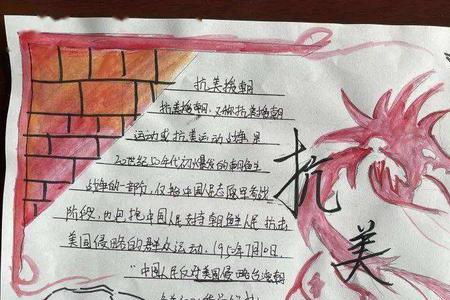 抗美援朝
抗美援朝，又称抗美援朝
运动或抗美运动战争，是
20世纪50年代初爆发的朝鲜
战争的一部分，仅指中国人民志愿军参战
阶段，也包括中国人民支持朝鲜人民抗击
美国侵略的群众运动。1950年7月10日
"中国人民反对美国侵略台湾朝
抗
美